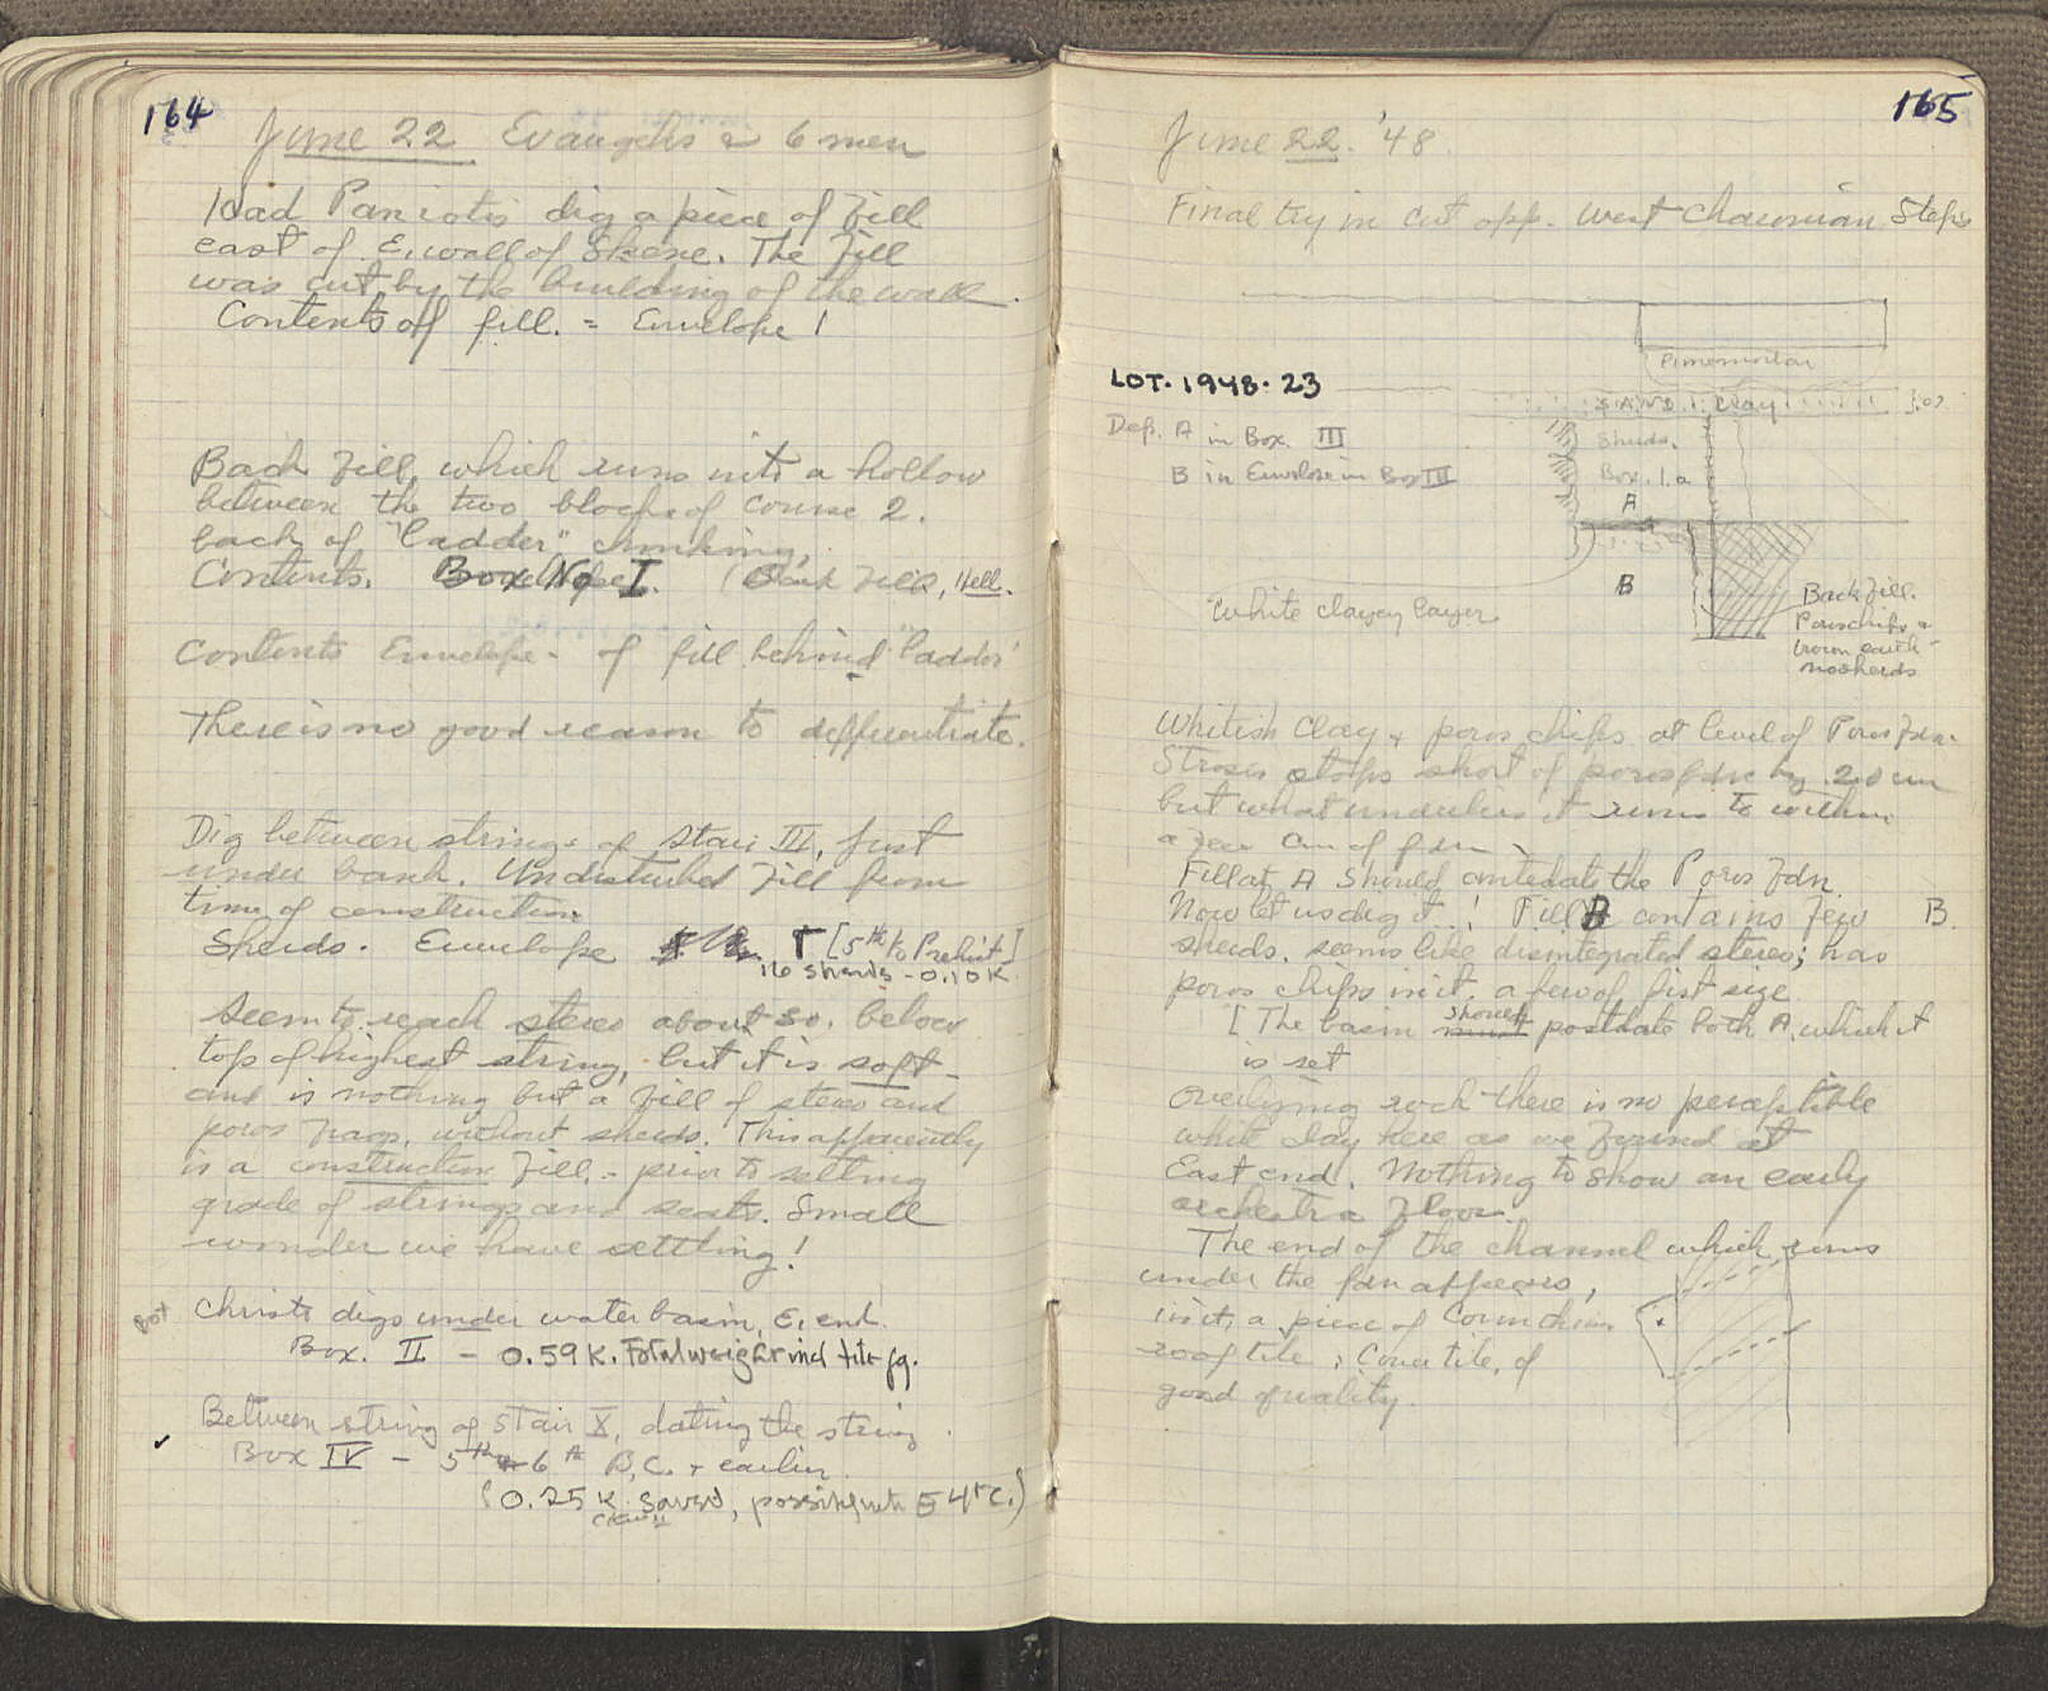 164
June 22 Evangelis & 6 men
Had Paniotis dig a piece of fill
east of E. wall of Skene. The fill
was cut by the building of the wall.
Contents of fill. = Envelope 1
Back fill, which runs into a hollow
between the two blocks of course 2.
back of "ladder" 
Contents. I. (Back Fill, Hell.
Contents Envelope - of fill behind "ladder"
There is no good reason to differentiate.
Dig between strings of Stair III, just
under bank. Undisturbed fill from
time of construction
Sherds. Envelope Γ [5th to Prehist.]
116 sherds - 0.10 K
Seem to reach stereo about 30. below
top of highest string, but it is soft -
and is nothing but a fill of stereo and
poros frags. without sherds. This apparently
is a construction fill. - prior to setting
grade of strings and seats. Small
wonder we have settling!
Christo digs under water basin, E. end.
Box. II - 0.59 K. Total weight incl tile fg.
Between string of Stair X, dating the string
✓ Box IV - 5th 6th B.C. + earlier
(0.25 K. saved, 4th C.)
165
June 22. '48.
Final try in cut opp. west Chaironian Steps
LOT. 1948. 23
SAND. Clay
Dep. A in Box. III
B in Envelope in Box III
Sherds.
Box. 1.a
A
B
White clayey layer
Back fill.
Poros chips &
brown earth -
no sherds
Whitish clay + poros chips at level of Poros Fdn.
Strosis stops short of poros fdn by .20 cm
but what underlies it runs to within
a few cm of fdn
Fill at A should antedate the Poros Fdn.
Now let us dig it..! Fill B contains few B.
sherds. seems like disintegrated stereo; has
poros chips in it, a few of fist size
[The basin should must postdate both A, which it
is set
Overlying rock there is no perceptible
white clay here as we found at
East end. Nothing to show an early
orchestra floor.
The end of the channel which runs
under the fdn appears,
in it, a piece of Corinthian
roof tile, Cover tile, of
good quality.